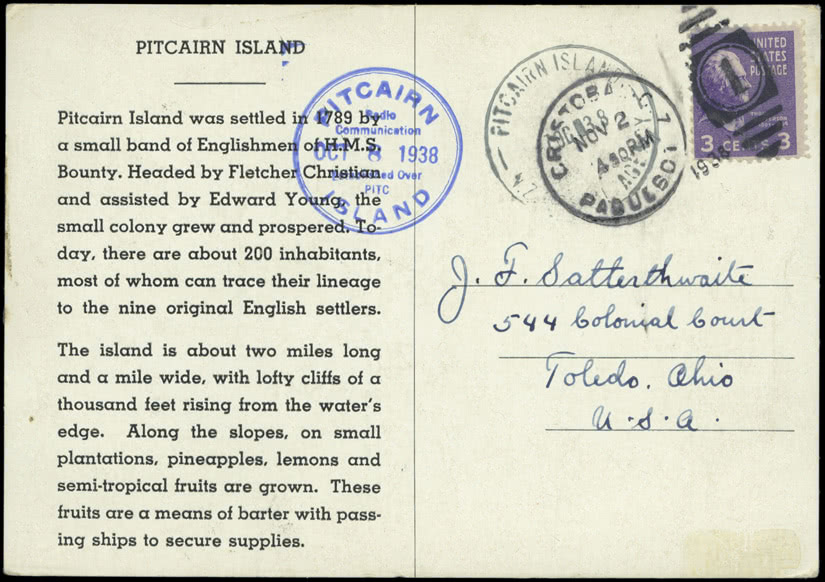 PITCAIRN ISLAND
Pitcairn Island was settled in 1789 by
a small band of Englishmen of H.M.S.
Bounty. Headed by Fletcher Christian
and assisted by Edward Young, the
small colony grew and prospered. To-
day, there are about 200 inhabitants,
most of whom can trace their lineage
to the nine original English settlers.
The island is about two miles long
and a mile wide, with lofty cliffs of a
thousand feet rising from the water's
edge. Along the slopes, on small
plantations, pineapples, lemons and
semi-tropical fruits are grown. These
fruits are a means of barter with pass-
ing ships to secure supplies.
PITCAIRN
Radio
Communication
OCT 8 1938
Over
PITC
ISLAND
PITCAIRN ISLAN
CRISTOBA C Z
NOV 2
PM
PAQUEBOT
UNITED
STATES
POSTAGE
3 CENTS 3
J. F. Satterthwaite
544 Colonial Court
Toledo, Ohio
U.S.A.